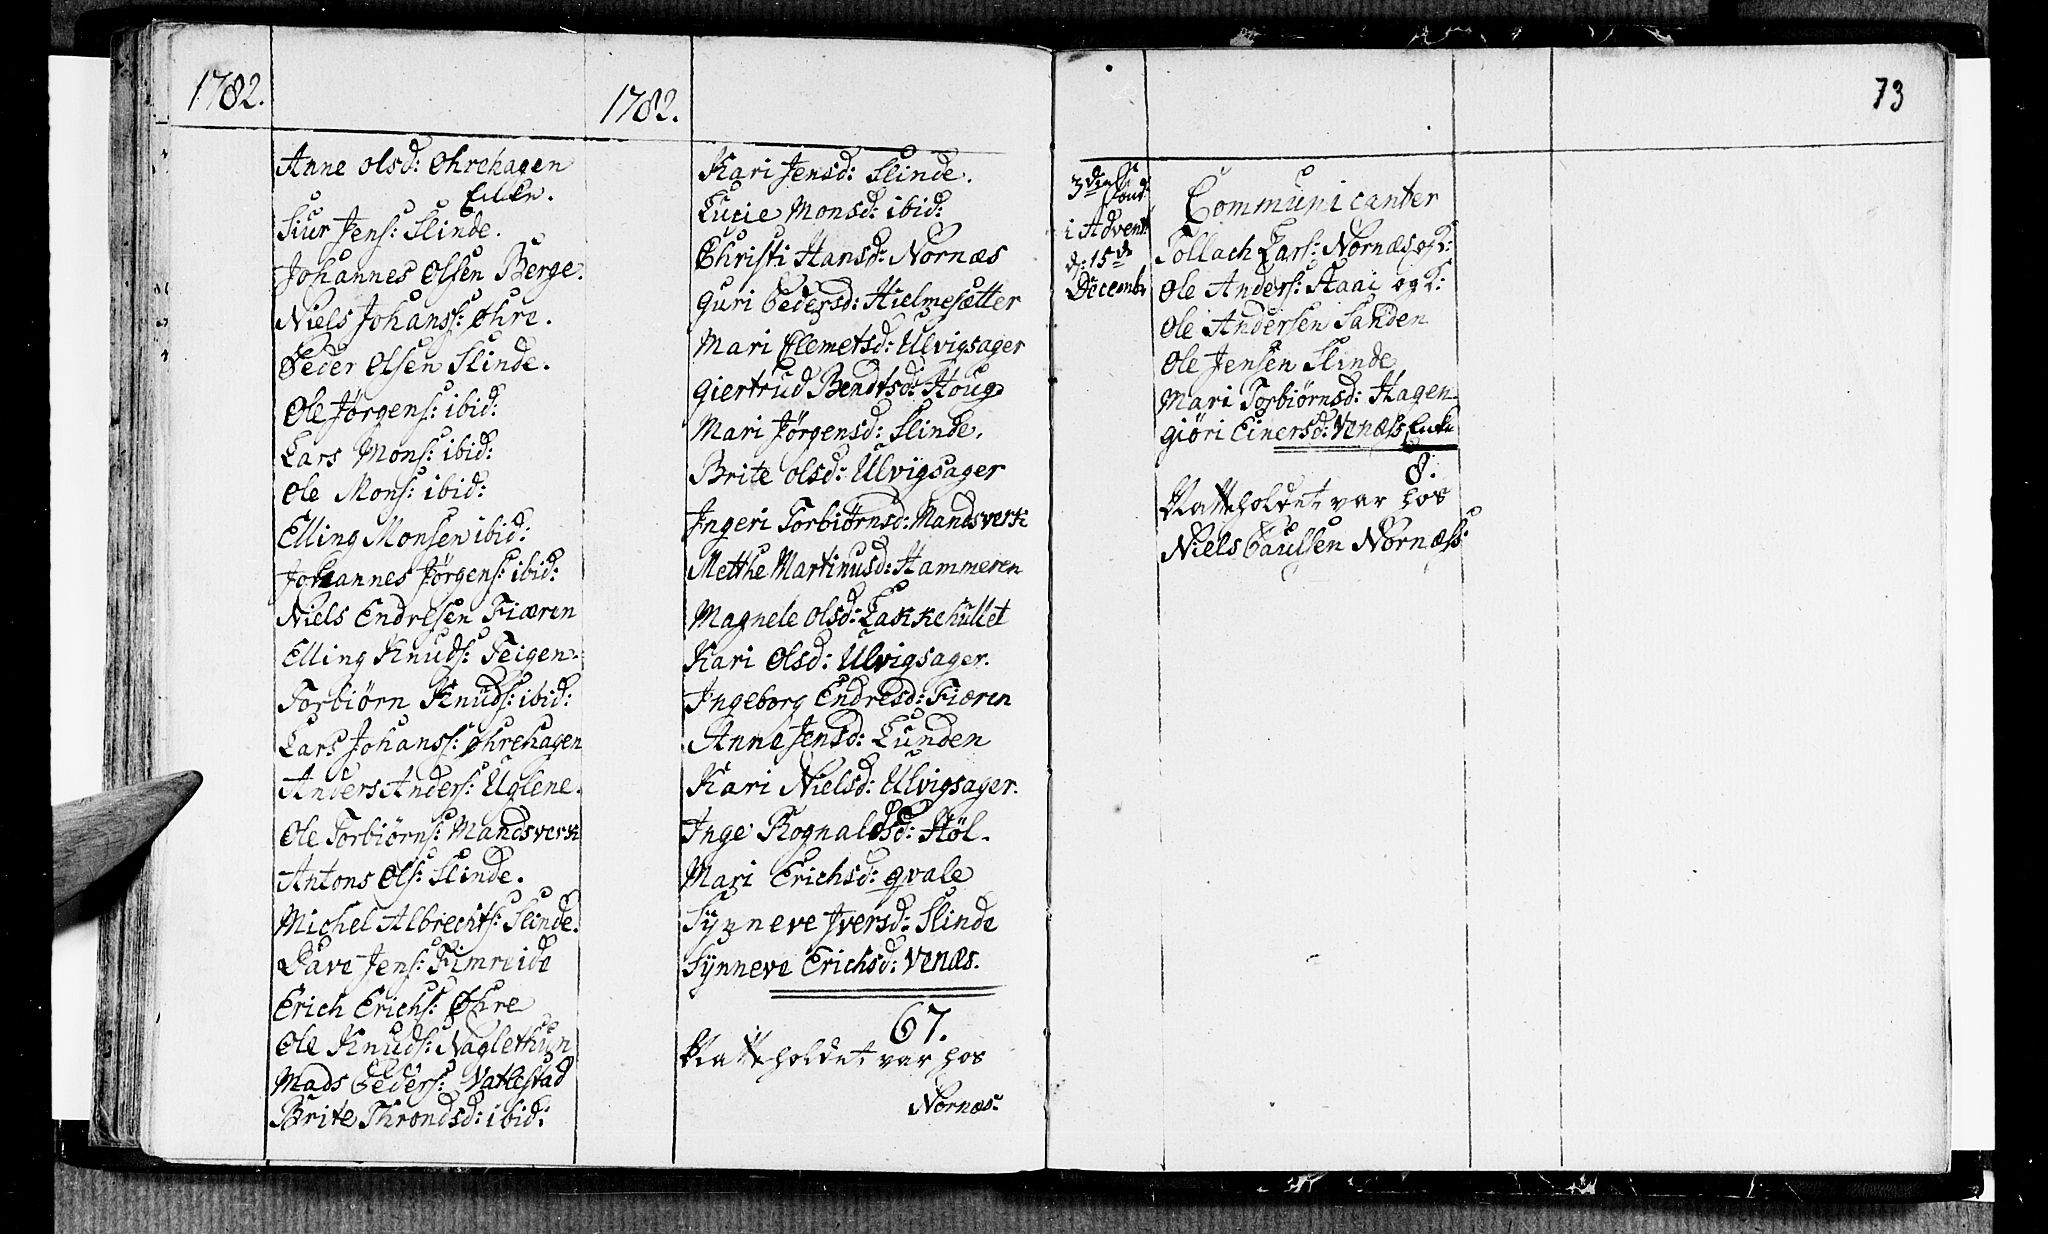 1782.
Anne Olsd: Øhrehagen
Enke.
Siur Jens: Slinde.
Johannes Olsen Berge.
Niels Johanss: Øhre.
Peder Olsen Slinde.
Ole Jörgens: ibid:
Lars Mons: ibid:
Ole Mons: ibid:
Elling Monsen ibid:
Johannes Jörgens: ibid:
Niels Endresen Fiæren
Elling Knuds: Teigen.
Torbiørn Knuds: ibid:
Lars Johanss: Øhrehagen
Anders Anders: Uglene.
Ole Torbiörns: Mandsverk
Antons Ols: Slinde.
Michel Albrechts: Slinde.
Dave Jens: Fimreide
Erich Erichs: Øhre
Ole Knuds: Naglethun
Mads Peders: Vatlestad
Brite Throndsd: ibid:
1782.
Kari Jensd: Slinde.
Lucie Monsd: ibid:
Christi Hansd: Nornæs
Guri Pedersd: Hielmesætter
Mari Clemetsd: Ulvigsager
Giertrud Bendtsd: Houg
Mari Jörgensd: Slinde.
Brite Olsd: Ulvigsager
Ingeri Torbiørnsd: Mandsverk
Metthe Martinusd: Hammeren
Magnele Olsd: Lakkehullet
Kari Olsd: Ulvigsager.
Ingeborg Endresd: Fiæren
Anne Jensd: Lunden
Kari Nielsd: Ulvigsager.
Inge Rognaldsd: Höl.
Mari Erichsd: Qvale
Synneve Iversd: Slinde
Synneve Erichsd: Venæs.
67.
holdet var hos
Nornæs:
73
3die Sönd:
i Advent
d: 15de
Decembr
Communicanter
Tollach Lars: Nornæs og K:
Ole Anders: Haai og K:
Ole Andersen Sanden
Ole Jensen Slinde
Mari Torbiörnsd: Hagen
Giöri Einersd: Venæss Enke
8.
holdet var hos
Niels Paulsen Nornæss: